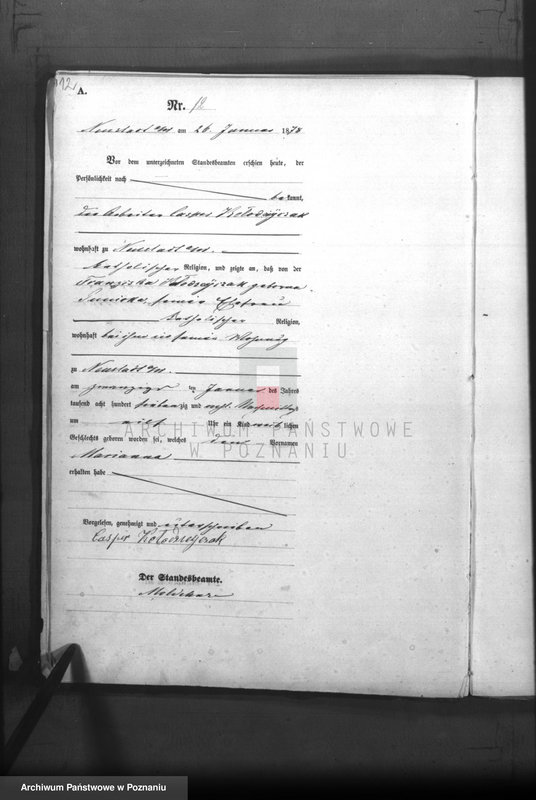 12.
A.
Nr. 12
Neustadt a/W. am 26. Januar 1878
Vor dem unterzeichneten Standesbeamten erschien heute, der
Persönlichkeit nach
bekannt,
der Arbeiter Casper Kołodziejczak
wohnhaft zu Neustadt a/W.
katholischer Religion, und zeigte an, daß von der
Franziska Kołodziejczak geborene
seiner Ehefrau
katholischer Religion,
wohnhaft bei ihm in seiner Wohnung
zu Neustadt a/W.
am zwanzigsten Januar des Jahres
tausend acht hundert siebenzig und acht Vormittags
um elf Uhr ein Kind weiblichen
Geschlechts geboren worden sei, welches den Vornamen
Marianna
erhalten habe
Vorgelesen, genehmigt und unterschrieben
Casper Kołodziejczak
Der Standesbeamte.
ARCHIWUM PAŃSTWOWE
W POZNANIU
Archiwum Państwowe w Poznaniu